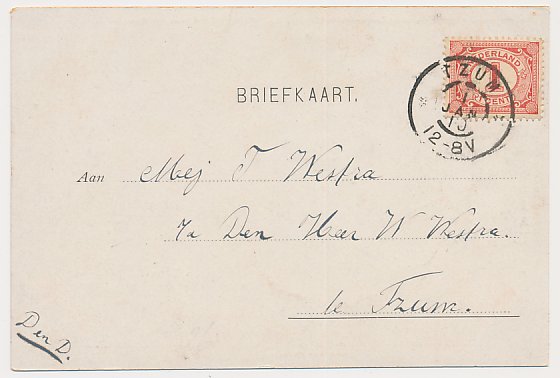 NEDERLAND
1
CENT
TZUM
1
JAN
10
12-8V
BRIEFKAART.
Aan Mej T Westra
p/a Den Heer W Westra.
te Tzum.
Den D.